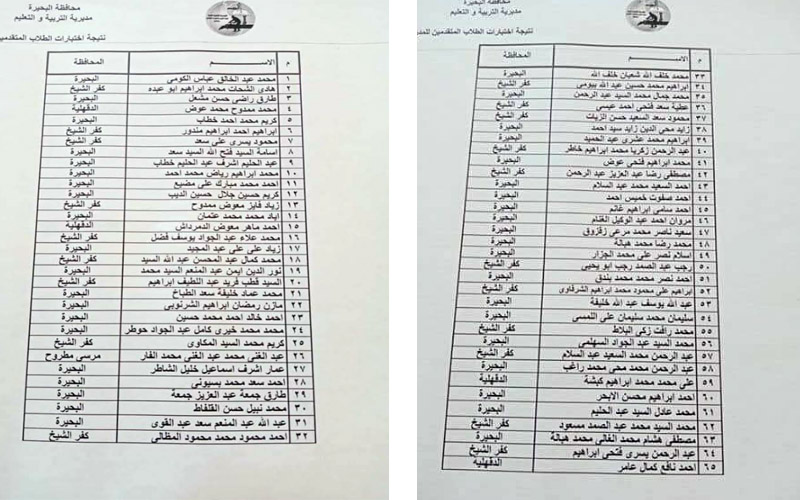 محافظة البحيرة
مديرية التربية و التعليم
نتيجة اختبارات الطلاب المتقدمين
م الاسم المحافظة
١ محمد عبد الخالق عباس الكومى البحيرة
٢ هادى الشحات محمد ابراهيم ابو عبده كفر الشيخ
٣ طارق راضى حسن مشعل البحيرة
٤ محمد ممدوح محمد عوض الدقهلية
٥ كريم محمد احمد خطاب البحيرة
٦ ابراهيم احمد ابراهيم مندور كفر الشيخ
٧ محمود يسرى على سعد كفر الشيخ
٨ اسامة السيد فتح الله السيد سعد البحيرة
٩ عبد الحليم اشرف عبد الحليم خطاب البحيرة
١٠ محمد ابراهيم رياض محمد احمد البحيرة
١١ احمد محمد مبارك على مضيع البحيرة
١٢ كريم حسين جلال حسين الديب البحيرة
١٣ زياد فايز معوض ممدوح كفر الشيخ
١٤ اياد محمد محمد عثمان البحيرة
١٥ احمد ماهر معوض الدمرداش الدقهلية
١٦ محمد علاء عبد الجواد يوسف فضل كفر الشيخ
١٧ زياد على على عبد المجيد البحيرة
١٨ محمد كمال عبد المحسن عبد الله السيد كفر الشيخ
١٩ نور الدين ايمن عبد المنعم السيد محمد البحيرة
٢٠ السيد قطب فريد عبد اللطيف ابراهيم كفر الشيخ
٢١ محمد عماد خليفة سعد الطباخ كفر الشيخ
٢٢ مازن رمضان ابراهيم الشرنوبى البحيرة
٢٣ احمد خالد احمد محمد حسين البحيرة
٢٤ محمد محمد خيرى كامل عبد الجواد حوطر البحيرة
٢٥ كريم محمد السيد المكاوى كفر الشيخ
٢٦ عبد الغنى محمد عبد الغنى محمد الفار مرسى مطروح
٢٧ عمار اشرف اسماعيل خليل الشاطر البحيرة
٢٨ احمد سعد محمد بسيونى البحيرة
٢٩ طارق جمعة عبد العزيز جمعة البحيرة
٣٠ محمد نبيل حسن القلفاط البحيرة
٣١ عبد الله عبد المنعم سعد عبد القوى البحيرة
٣٢ احمد محمود محمد محمود المظالى كفر الشيخ
محافظة البحيرة
مديرية التربية و التعليم
نتيجة اختبارات الطلاب المتقدمين
م الاسم المحافظة
٣٣ محمد خلف الله شعبان خلف الله البحيرة
٣٤ ابراهيم محمد حسين عبد الله بيومى كفر الشيخ
٣٥ محمد جمال محمد السيد عبد الرحمن البحيرة
٣٦ عطية سعد فتحى احمد عيسى كفر الشيخ
٣٧ محمود سعد السعيد حسن الزيات كفر الشيخ
٣٨ زايد محى الدين زايد سيد احمد البحيرة
٣٩ ابراهيم محمد عشرى عبد الحميد البحيرة
٤٠ عبد الرحمن زكريا محمد ابراهيم خاطر كفر الشيخ
٤١ محمد ابراهيم فتحى عوض البحيرة
٤٢ مصطفى رضا عبد العزيز عبد الرحمن كفر الشيخ
٤٣ احمد السعيد محمد عبد السلام البحيرة
٤٤ احمد صفوت خميس احمد البحيرة
٤٥ احمد سامى ابراهيم غانم البحيرة
٤٦ مروان احمد عبد الوكيل الغنام البحيرة
٤٧ سعيد ناصر محمد مرعى زقزوق البحيرة
٤٨ محمد رضا محمد هيالة البحيرة
٤٩ اسلام نصر على محمد الجزار البحيرة
٥٠ رجب عبد الصمد رجب ابو يحيى كفر الشيخ
٥١ احمد نصر محمد محمد بندق البحيرة
٥٢ ابراهيم على محمود محمد ابراهيم الشرقاوى كفر الشيخ
٥٣ عبد الله يوسف عبد الله خليفة البحيرة
٥٤ سليمان محمد سليمان على اللمسى البحيرة
٥٥ محمد رافت زكى البلاط كفر الشيخ
٥٦ محمد السيد عبد الجواد السهلمى البحيرة
٥٧ عبد الرحمن محمد السعيد عبد السلام كفر الشيخ
٥٨ عبد الرحمن محمد محى محمد راغب البحيرة
٥٩ على محمد محمد ابراهيم كبشة الدقهلية
٦٠ احمد ابراهيم محسن الابحر البحيرة
٦١ محمد عادل السيد عبد الحليم البحيرة
٦٢ محمد السيد محمد عبد الصمد مسعود كفر الشيخ
٦٣ مصطفى هشام محمد الغالى محمد هيالة البحيرة
٦٤ عبد الرحمن يسرى فتحى ابراهيم كفر الشيخ
٦٥ احمد نافع كمال عامر الدقهلية